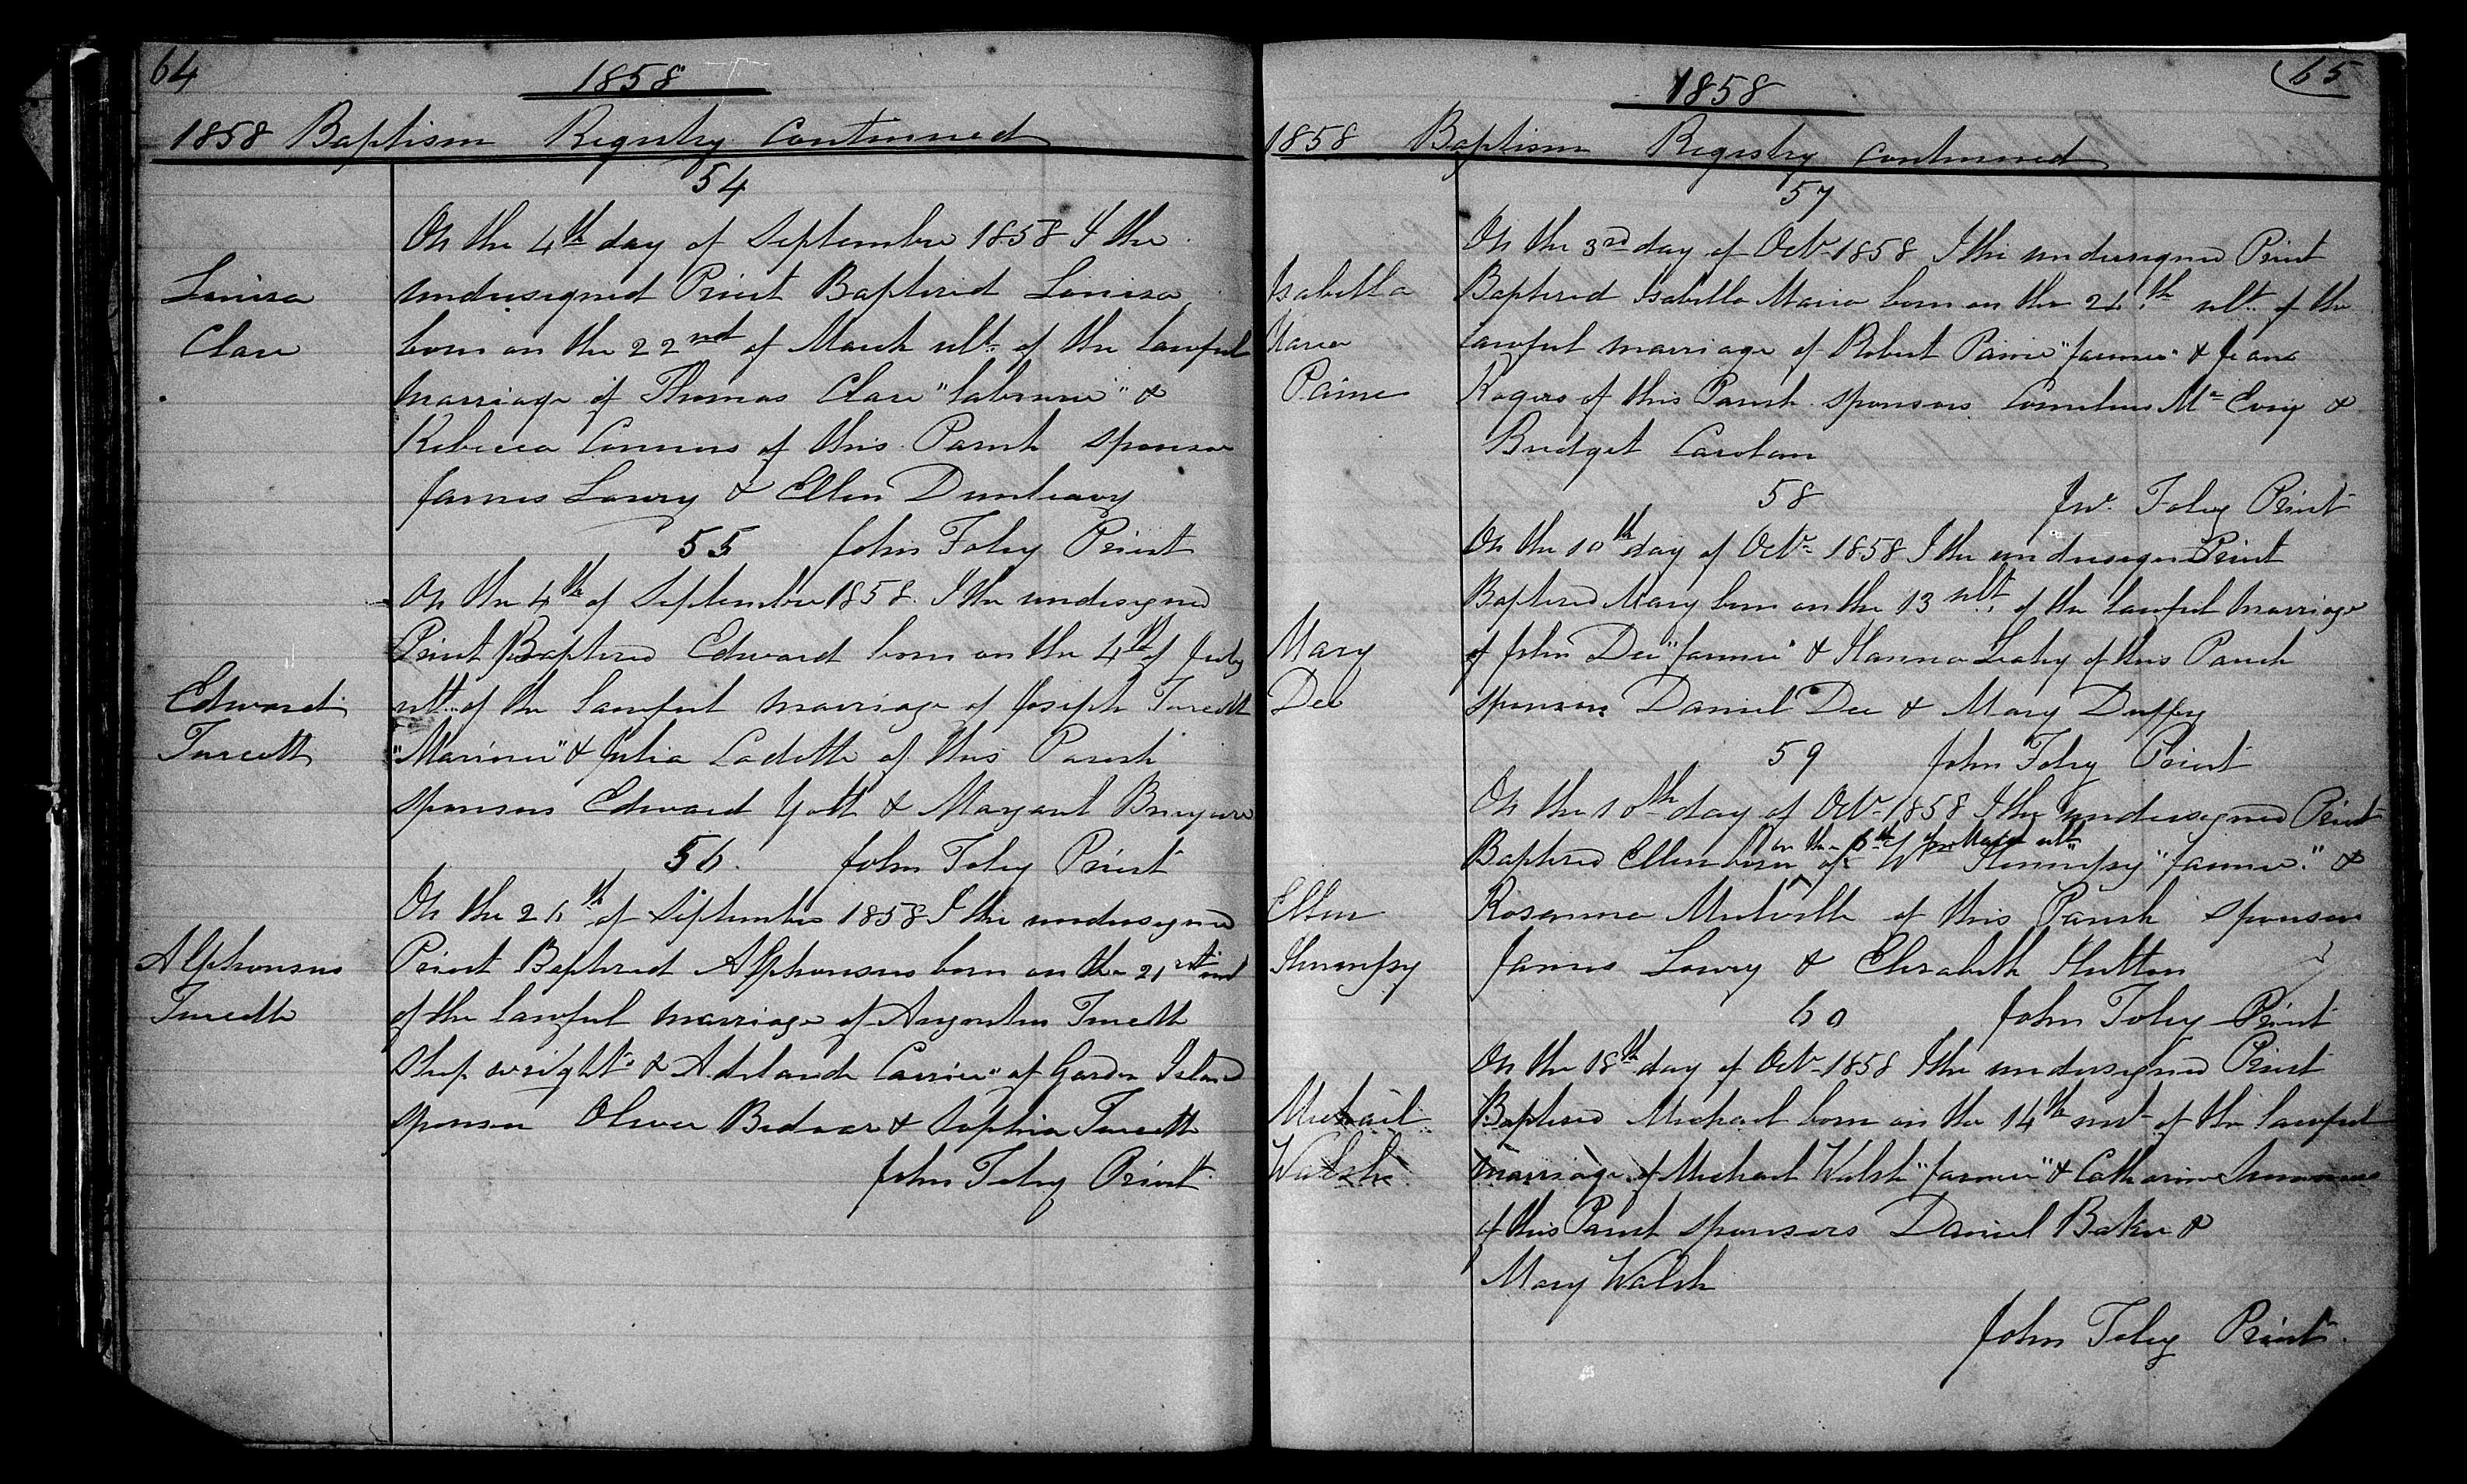 64
1858
1858 Baptism Registry Continued
54
On the 4th day of September 1858 I the
Louisa
Clare
undersigned Priest Baptised Louisa
born on the 22nd of March ult. of the lawful
marriage of Thomas Clare "labourer" &
Rebecca Connors of this Parish sponsors
James Lowry & Ellen Dunleavy
55 John Foley Priest
On the 4th of September 1858 I the undersigned
Priest Baptised Edward born on the 4th of July
Edward
Turcott
ult. of the lawful marriage of Joseph Turcott
"Mariner" & Julia Cadotte of this Parish
sponsors Edward Yott & Margaret
56. John Foley Priest
On the 26th of September 1858 I the undersigned
Alphonsus
Turcotte
Priest Baptised Alphonsus born on the 21st inst
of the lawful marriage of Augustus Turcotte
Ship wright & Adelaide Carrier" of Garden Island
sponsors Oliver & Sophia Turcotte
John Foley Priest
65
1858
1858 Baptism Registry continued
57
On the 3rd day of Octr 1858 I the undersigned Priest
Isabella
Maria
Paine
Baptised Isabella Maria born on the 26th ult. of the
lawful marriage of Robert Paine "farmer" & Jeana
Rogers of this Parish sponsors Cornelius Mc Evoy &
Bridget Carolan
58 Jno. Foley Priest
On the 10th day of Octr 1858 I the undersigned Priest
Baptised Mary born on the 13 ult. of the lawful marriage
Mary
Dee
of John Dee "farmer" & Hanna Leahy of this Parish
sponsors Daniel Dee & Mary Duffy
59 John Foley Priest
On the 10th day of Octr 1858 I the undersigned Priest
on the 6th of March ult
Baptised Ellen born of Wm Hennessy "farmer" &
Ellen
Hennessy
Rosanna Mulville of this Parish sponsors
James Lowry & Elizabeth Hutton
60 John Foley Priest
On the 18th day of Octr 1858 I the undersigned Priest
Michael
Walsh
Baptised Michael born on the 14th inst of the lawful
marriage of Michael Walsh "farmer" & Catharine
of this Parish sponsors Daniel Baker &
Mary Walsh
John Foley Priest